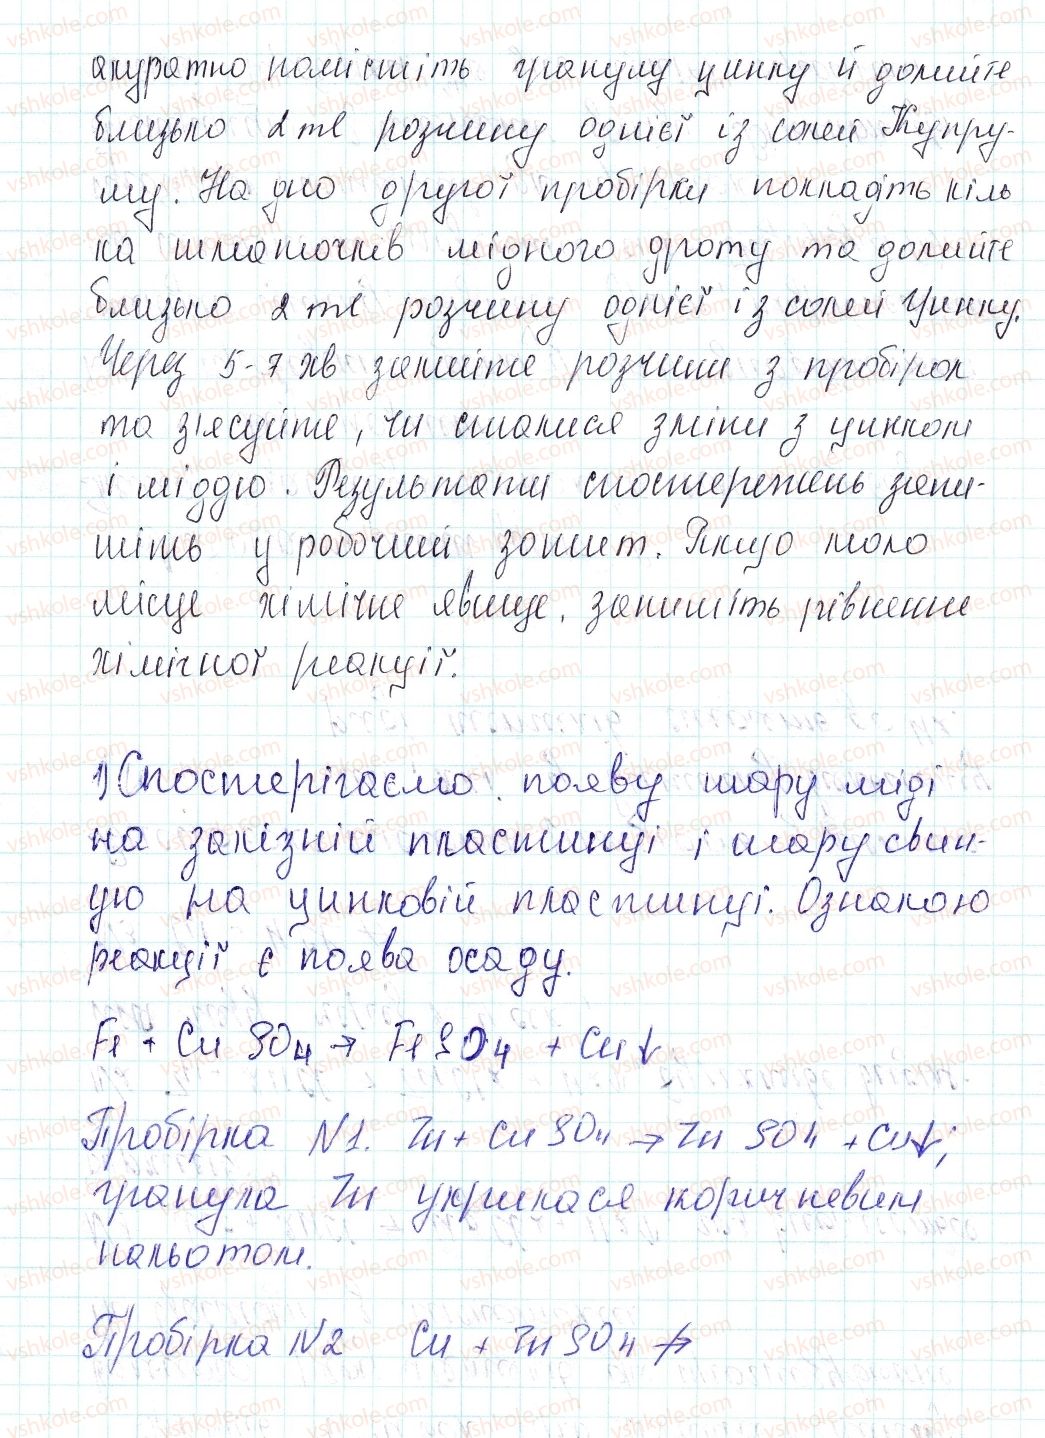 акуратно помістіть гранулу цинку й долийте
близько 2 ml розчину однієї із солей Купру-
му. На дно другої пробірки покладіть кіль
ка шматочків мідного дроту та долийте
близько 2 ml розчину однієї із солей Цинку.
Через 5-7 хв злийте розчини з пробірок
та з'ясуйте, чи сталися зміни з цинком
і міддю. Результати спостережень запи-
шіть у робочий зошит. Якщо мало
місце хімічне явище, запишіть рівняння
хімічної реакції.
1) Спостерігаємо появу шару міді
на залізній пластинці і шару свин-
цю на цинковій пластинці. Ознакою
реакції є поява осаду.
Fe + CuSO4 → FeSO4 + Cu↓
Пробірка N1. Zn + CuSO4 → ZnSO4 + Cu↓;
гранула Zn укрилася коричневим
нальотом.
Пробірка N2 Cu + ZnSO4 ↛